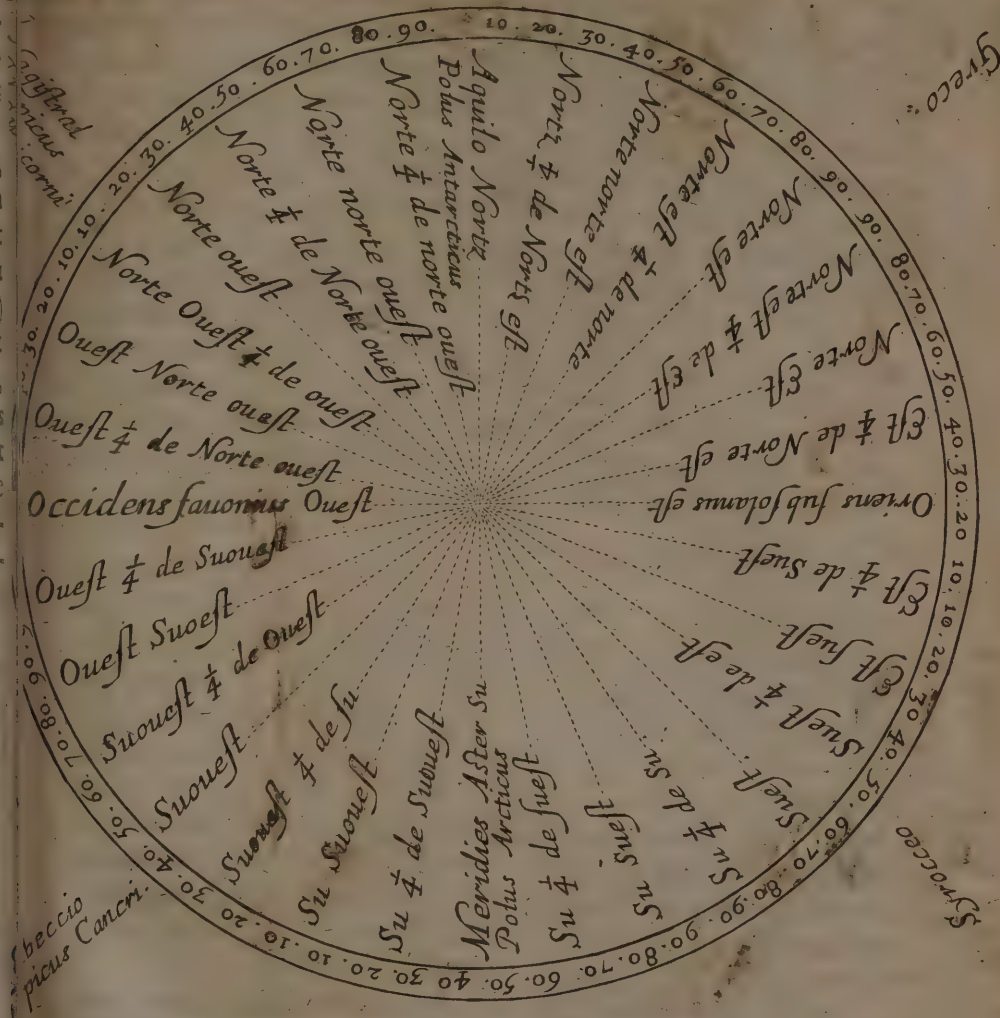 Greco
Syrocco
beccio
picus Cancri.
nicus
corni
10. 20. 30. 40. 50. 60. 70. 80. 90. 90. 80. 70. 60. 50. 40. 30. 20 10. 10. 20. 30 40. 50. 60. 70. 80. 90. 90. 80. 70. 60. 50. 40 30. 20. 10. 10. 20. 30. 40. 50. 60. 70. 80. 90. 20. 10. 10. 20. 30. 40. 50. 60. 70. 80. 90.
Aquilo Norte
Nort ¼ de Norte eſt
Norte norte eſt
Norte eſt ¼ de norte
Norte eſt
Norte eſt ¼ de Eſt
Norte Eſt
Eſt ¼ de Norte eſt
Oriens ſubſolanus eſt
Eſt ¼ de Sueſt
Eſt ſueſt
Sueſt ¼ de eſt
Sueſt
Su ¼ de Su
Su Sueſt
Su ¼ de ſueſt
Polus Arcticus
Meridies Aster Su
Su ¼ de Suoueſt
Su Suoueſt
Suoueſt ¼ de ſu
Suoueſt
Suoueſt ¼ de Oueſt
Oueſt Suoeſt
Oueſt ¼ de Suoueſt
Occidens fauonius Oueſt
Oueſt ¼ de Norte oueſt
Oueſt Norte oueſt
Norte Oueſt ¼ de oueſt
Norte oueſt
Norte ¼ de Norte oueſt
Norte norte oueſt
Norte ¼ de norte oueſt
Polus Antarcticus